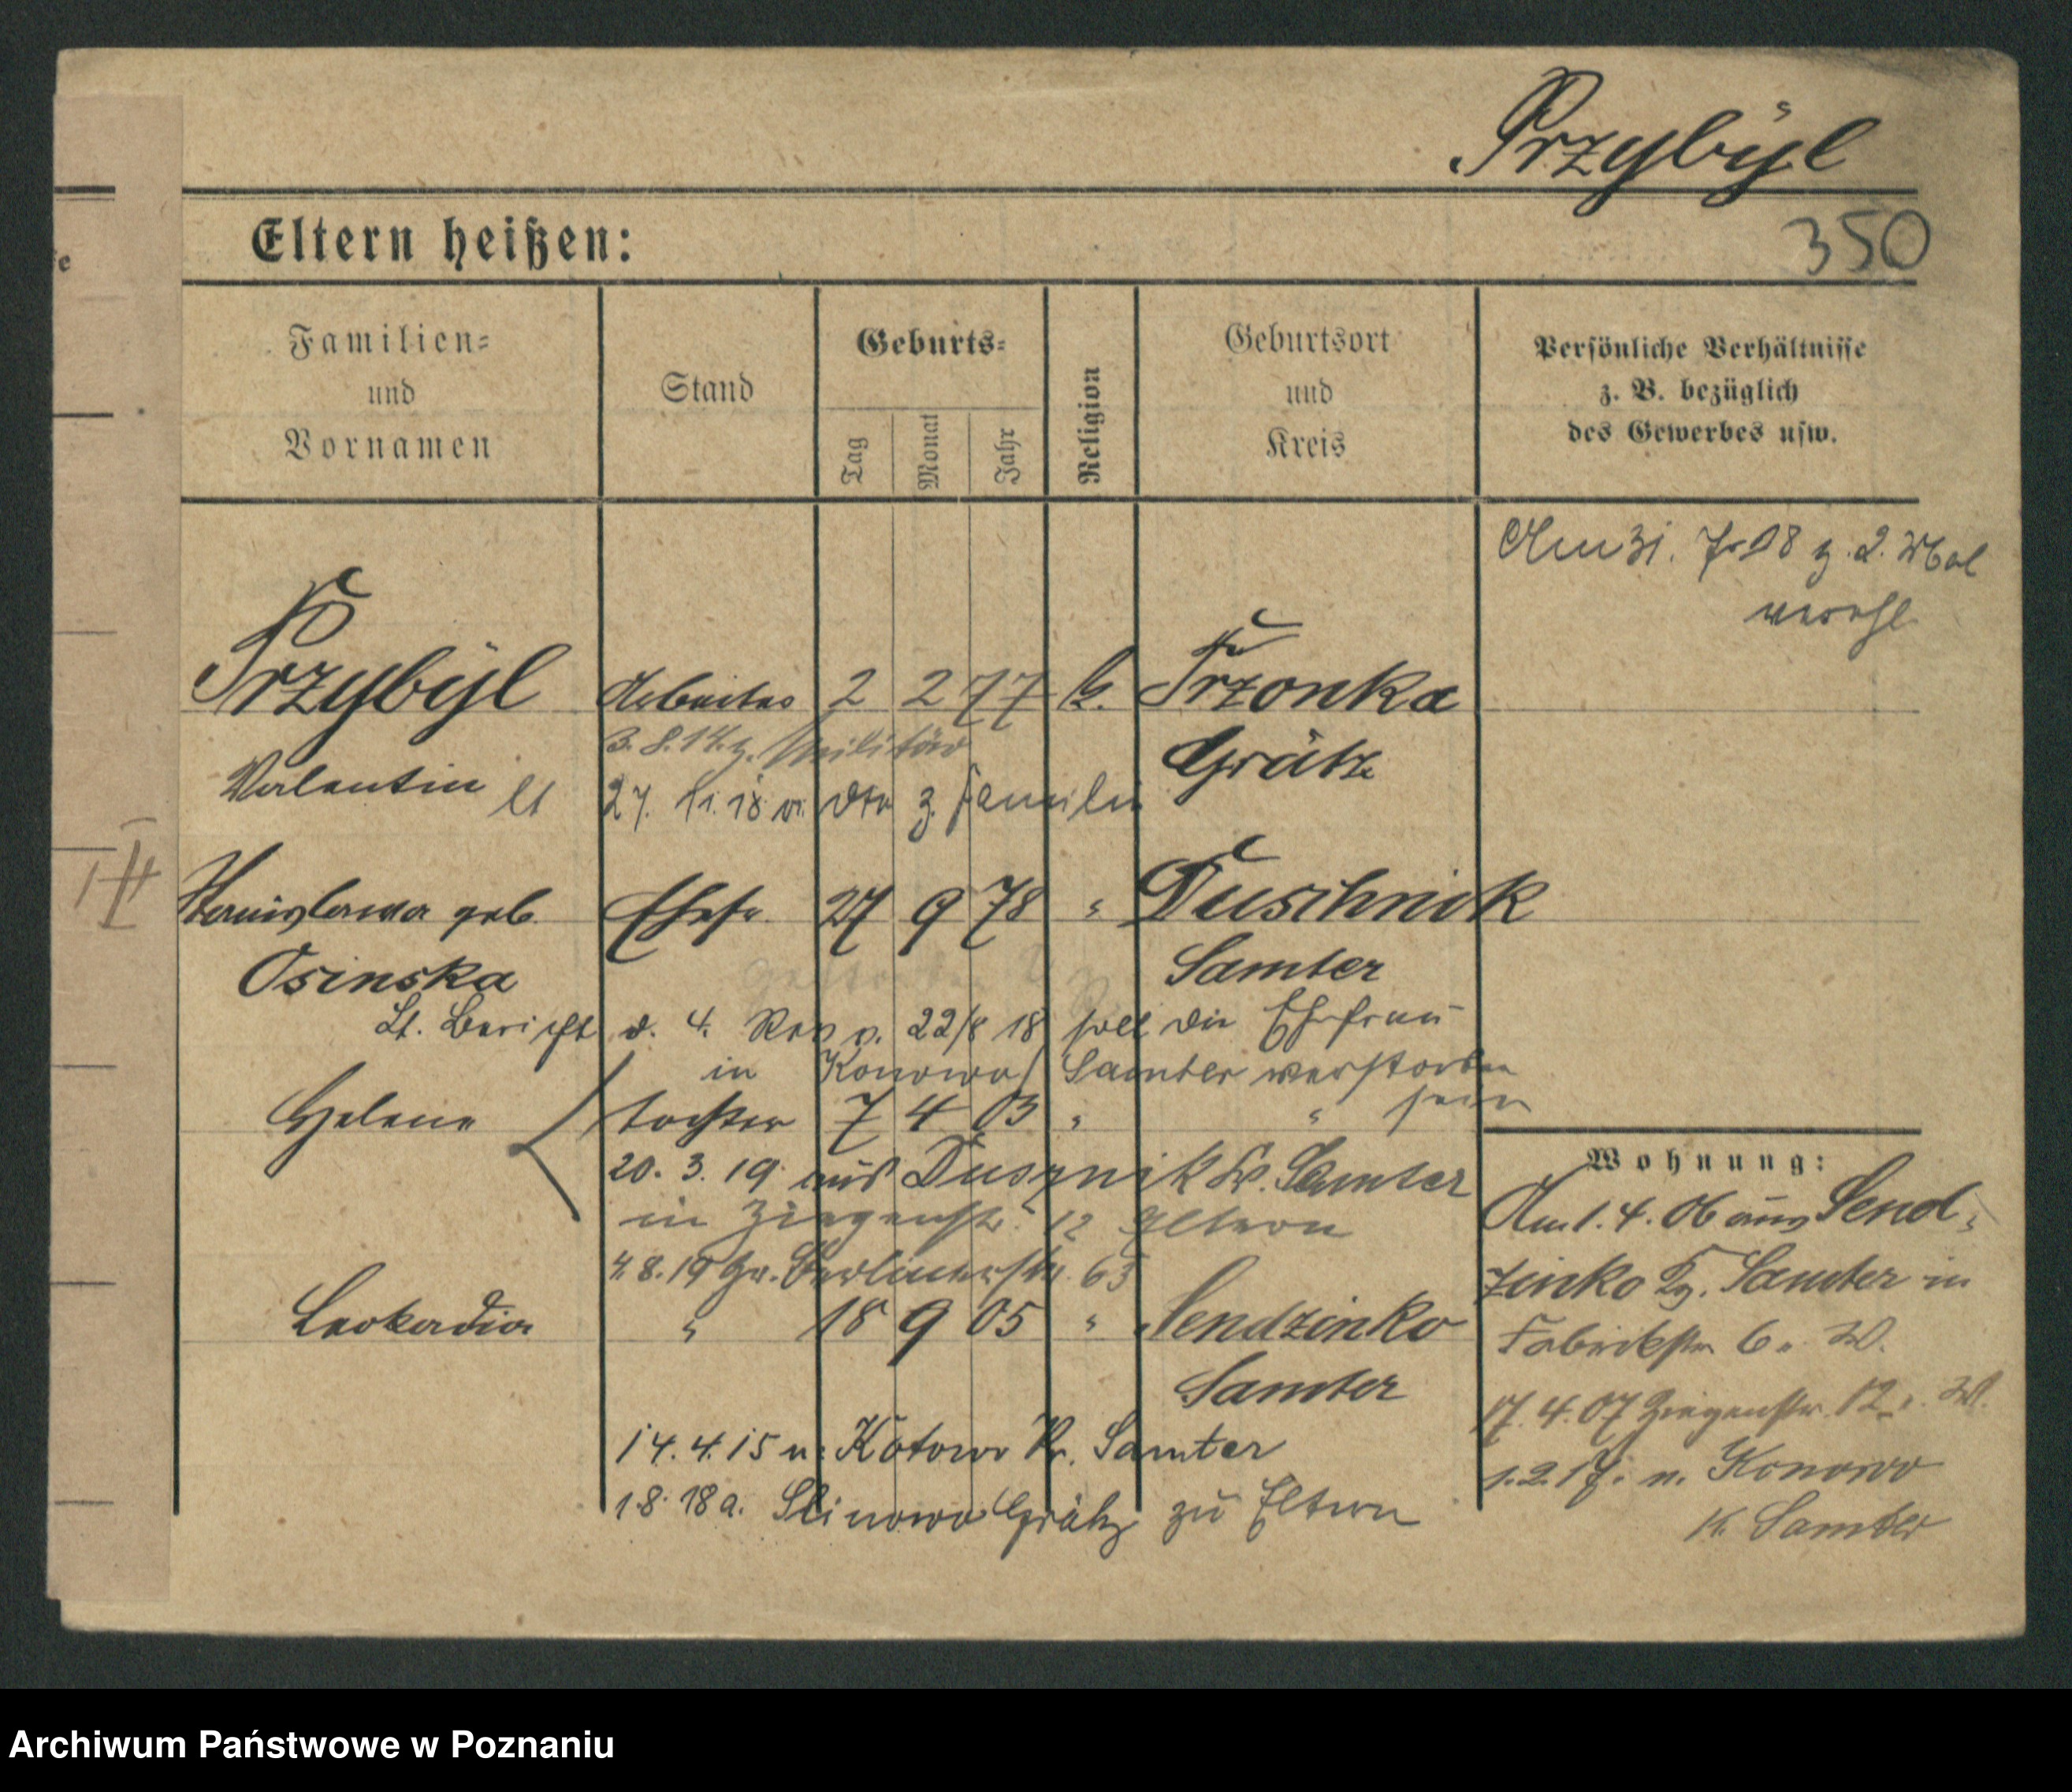 Przybÿl
350
Eltern heißen:
Familien=
und
Vornamen
Stand
Geburts=
Tag
Monat
Jahr
Religion
Geburtsort
und
Kreis
Persönliche Verhältnisse
z. B. bezüglich
des Gewerbes usw.
Am 31. 7. 18 z. 2. Mal
verehl.
Przybÿl Arbeiter 2 2 77 k. Trzonka
3. 8. 14 z. Militär Grätz
Valentin 27. 11. 18 v. dto z. Familie
Stanislawa geb. Ehefr. 27 9 78 " Duschnik
Osinska Samter
Lt. Bericht d. 4. Rev v. 22/8 18 soll die Ehefrau
in Konowo/ Samter verstorben
sein
Helene Tochter 7 4 03 " "
20. 3. 19 aus Dusznik Kr. Samter
in Ziegenstr. 12 Eltern
4. 8. 19 Gr. Berlinerstr. 65
Leokadia " 18 9 05 " Sendzinko
Samter
14. 4. 15 n. Kotowo Kr. Samter
1. 8. 18 a. Slinowo Grätz zu Eltern
Wohnung:
Am 1. 4. 06 aus Send=
zinko Kr. Samter in
Fabrikstr. 6. W.
17. 4. 07 Ziegenstr. 12. W.
1. 2. 17. n. Konowo
K. Samter
Archiwum Państwowe w Poznaniu